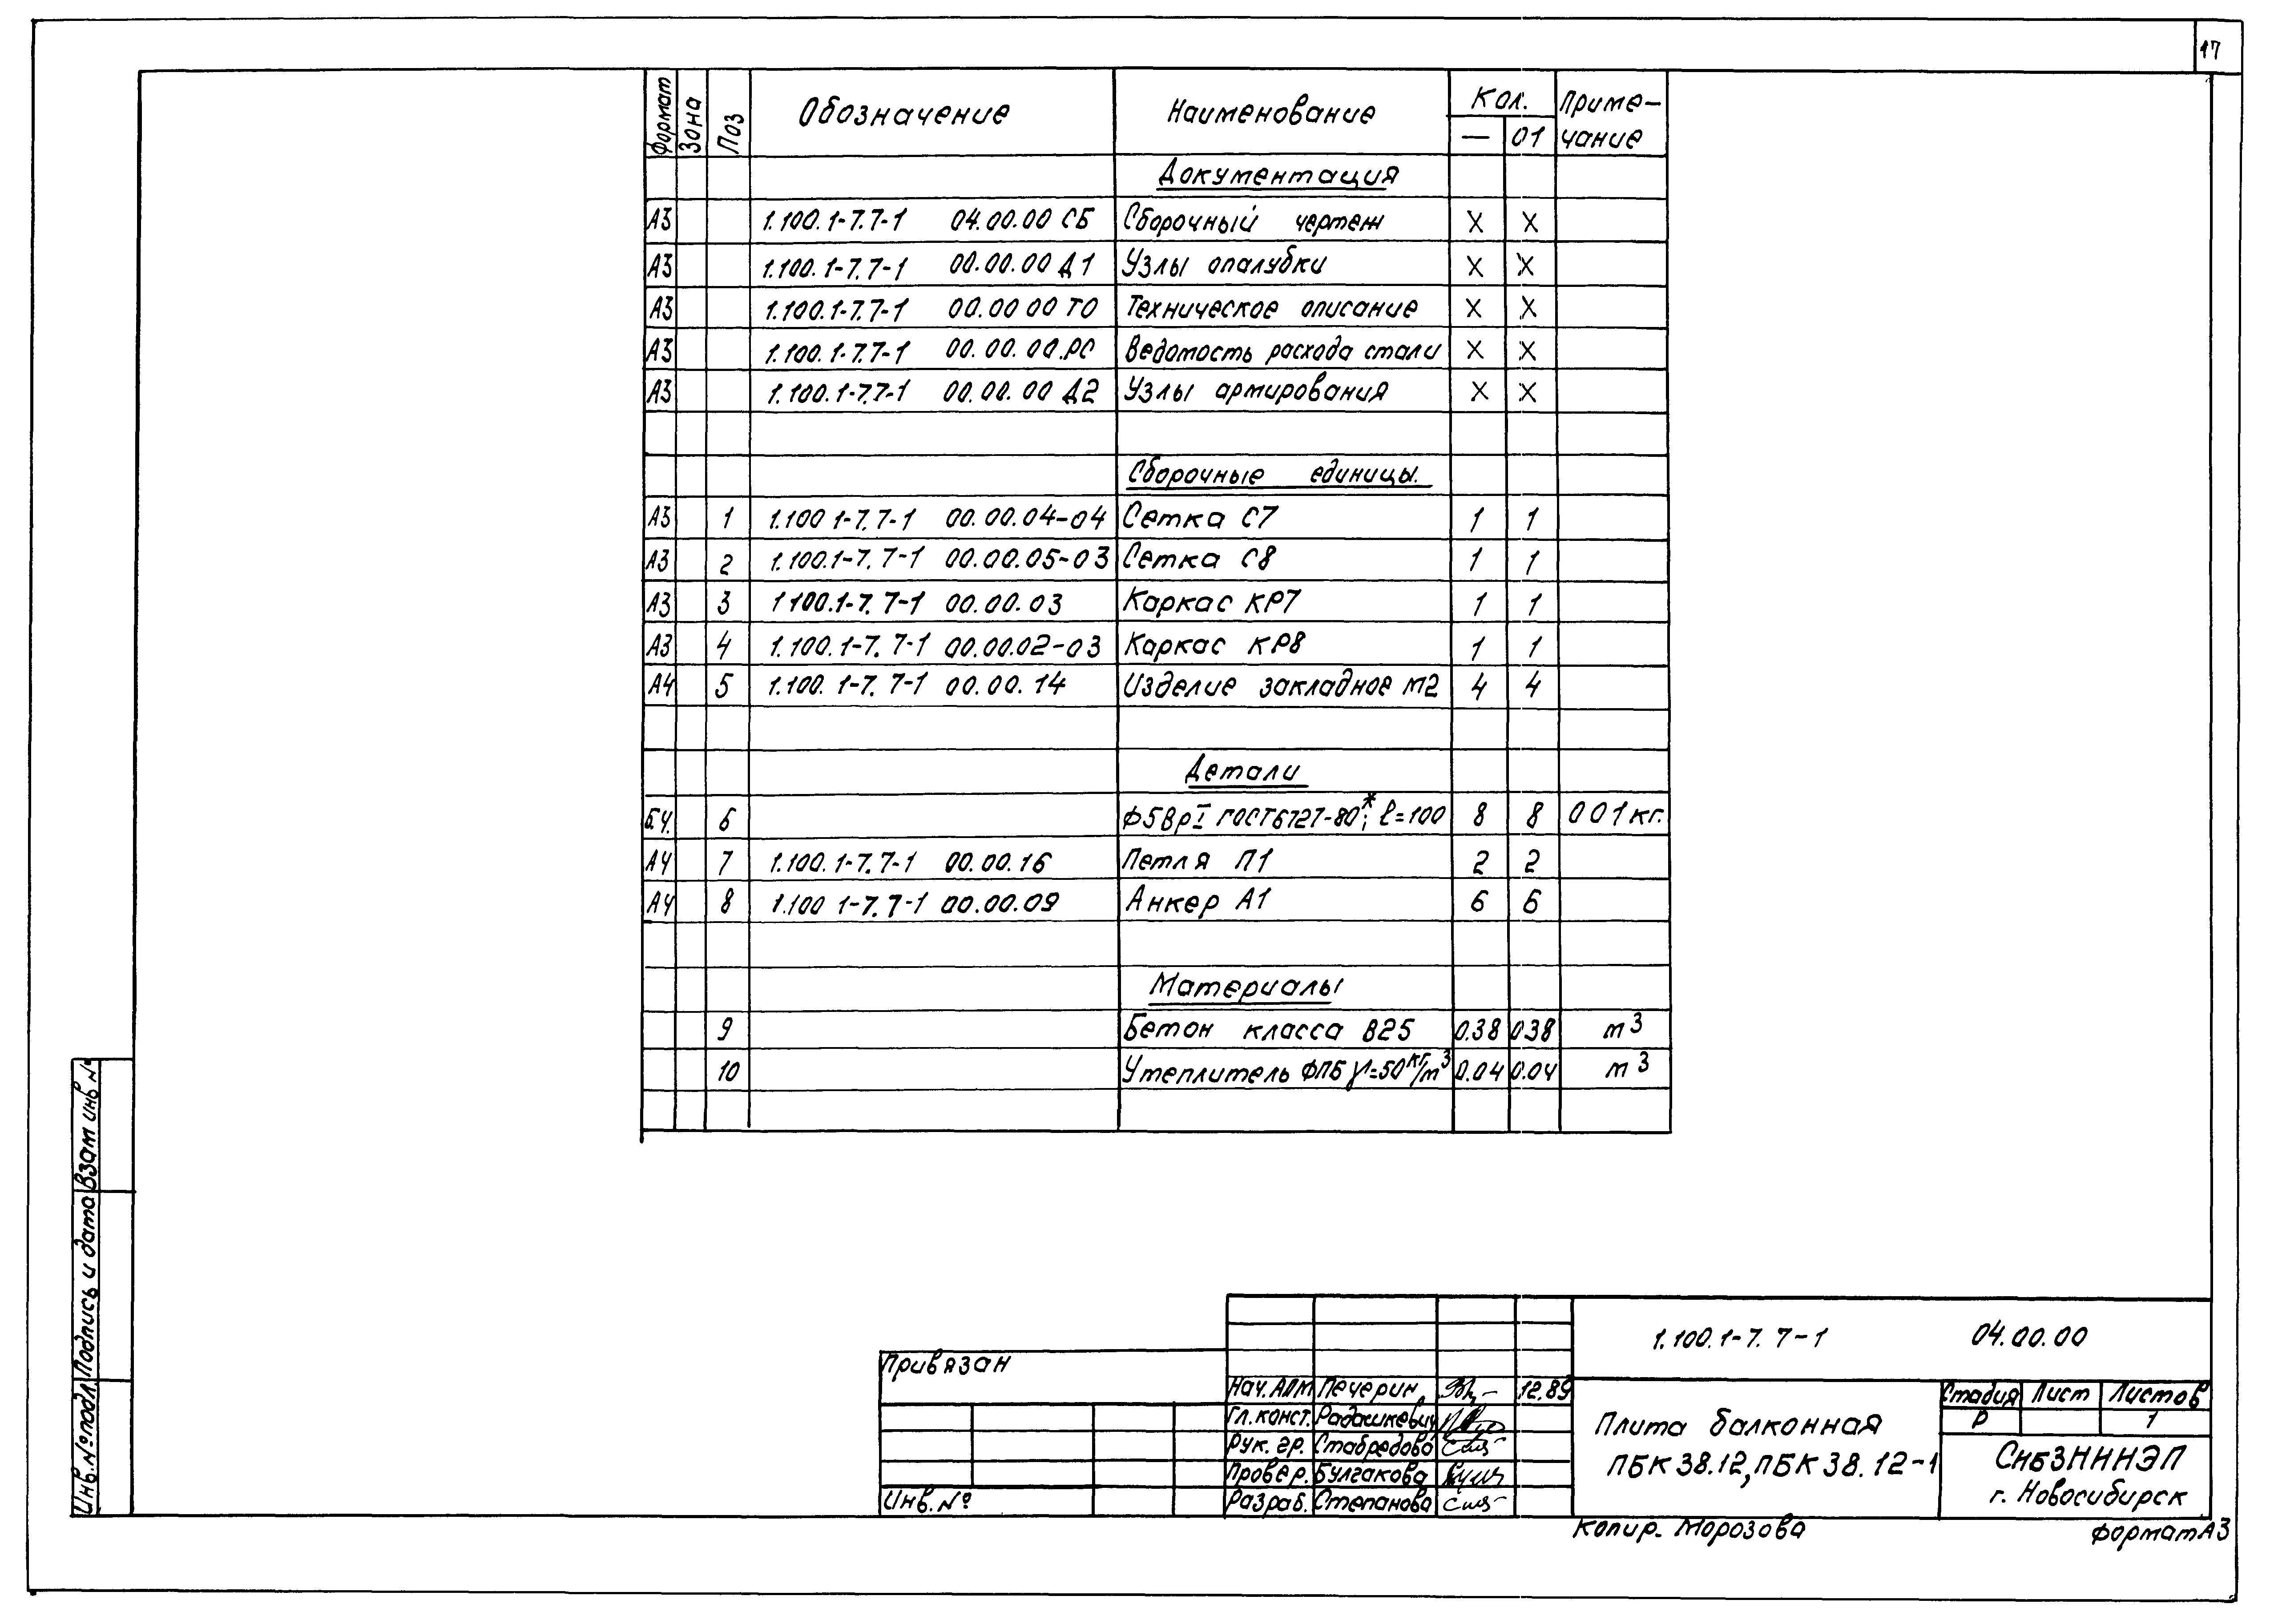 17
Формат Зона Поз Обозначение Наименование Кол. Приме-
— 01 чание
Документация
А3 1.100.1-7.7-1 04.00.00 СБ Сборочный чертеж X X
А3 1.100.1-7.7-1 00.00.00 Д1 Узлы опалубки X X
А3 1.100.1-7.7-1 00.00 00 ТО Техническое описание X X
А3 1.100.1-7.7-1 00.00.00.РС Ведомость расхода стали X X
А3 1.100.1-7.7-1 00.00.00 Д2 Узлы армирования X X
Сборочные единицы.
А3 1 1.100 1-7.7-1 00.00.04-04 Сетка С7 1 1
А3 2 1.100.1-7.7-1 00.00.05-03 Сетка С8 1 1
А3 3 1 100.1-7.7-1 00.00.03 Каркас КР7 1 1
А3 4 1.100.1-7.7-1 00.00.02-03 Каркас КР8 1 1
А4 5 1.100.1-7.7-1 00.00.14 Изделие закладное М2 4 4
Детали
Б.Ч. 6 Ф5ВрI ГОСТ6727-80*; ℓ=100 8 8 0 01кг.
А4 7 1.100.1-7.7-1 00.00.16 Петля П1 2 2
А4 8 1.100 1-7.7-1 00.00.09 Анкер А1 6 6
Материалы
9 Бетон класса В25 0.38 0.38 м³
10 Утеплитель ФПБ γ=50кг/м³ 0.04 0.04 м³
Инв.№подл. Подпись и дата Взам инв №
Привязан
Инв.№
Нач.АПМ Печерин 12.89
Гл.конст. Радашкевич
Рук. гр. Стабредова
Провер. Булгакова
Разраб. Степанова
1.100.1-7.7-1 04.00.00
Плита балконная
ПБК 38.12, ПБК 38.12-1
Стадия Лист Листов
Р 1
СибЗНИИЭП
г. Новосибирск
Копир. Морозова
Формат А3